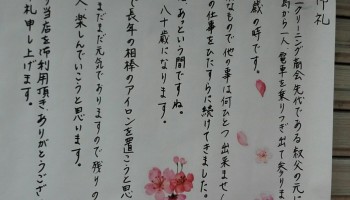 御礼
クリーニング商会先代である叔父の元に
歳の時です。
から一人、電車を乗りつぎ出て参りま
なもので他の事は何ひとつ出来ません
の仕事をひたすらに続けてきました。
、あっという間ですね。
八十歳になります。
で長年の相棒のアイロンを置こうと思
まだまだ元気でおりますので残りの
人、楽しんでいこうと思います。
当店を御利用頂きありがとうござ
礼申し上げます。